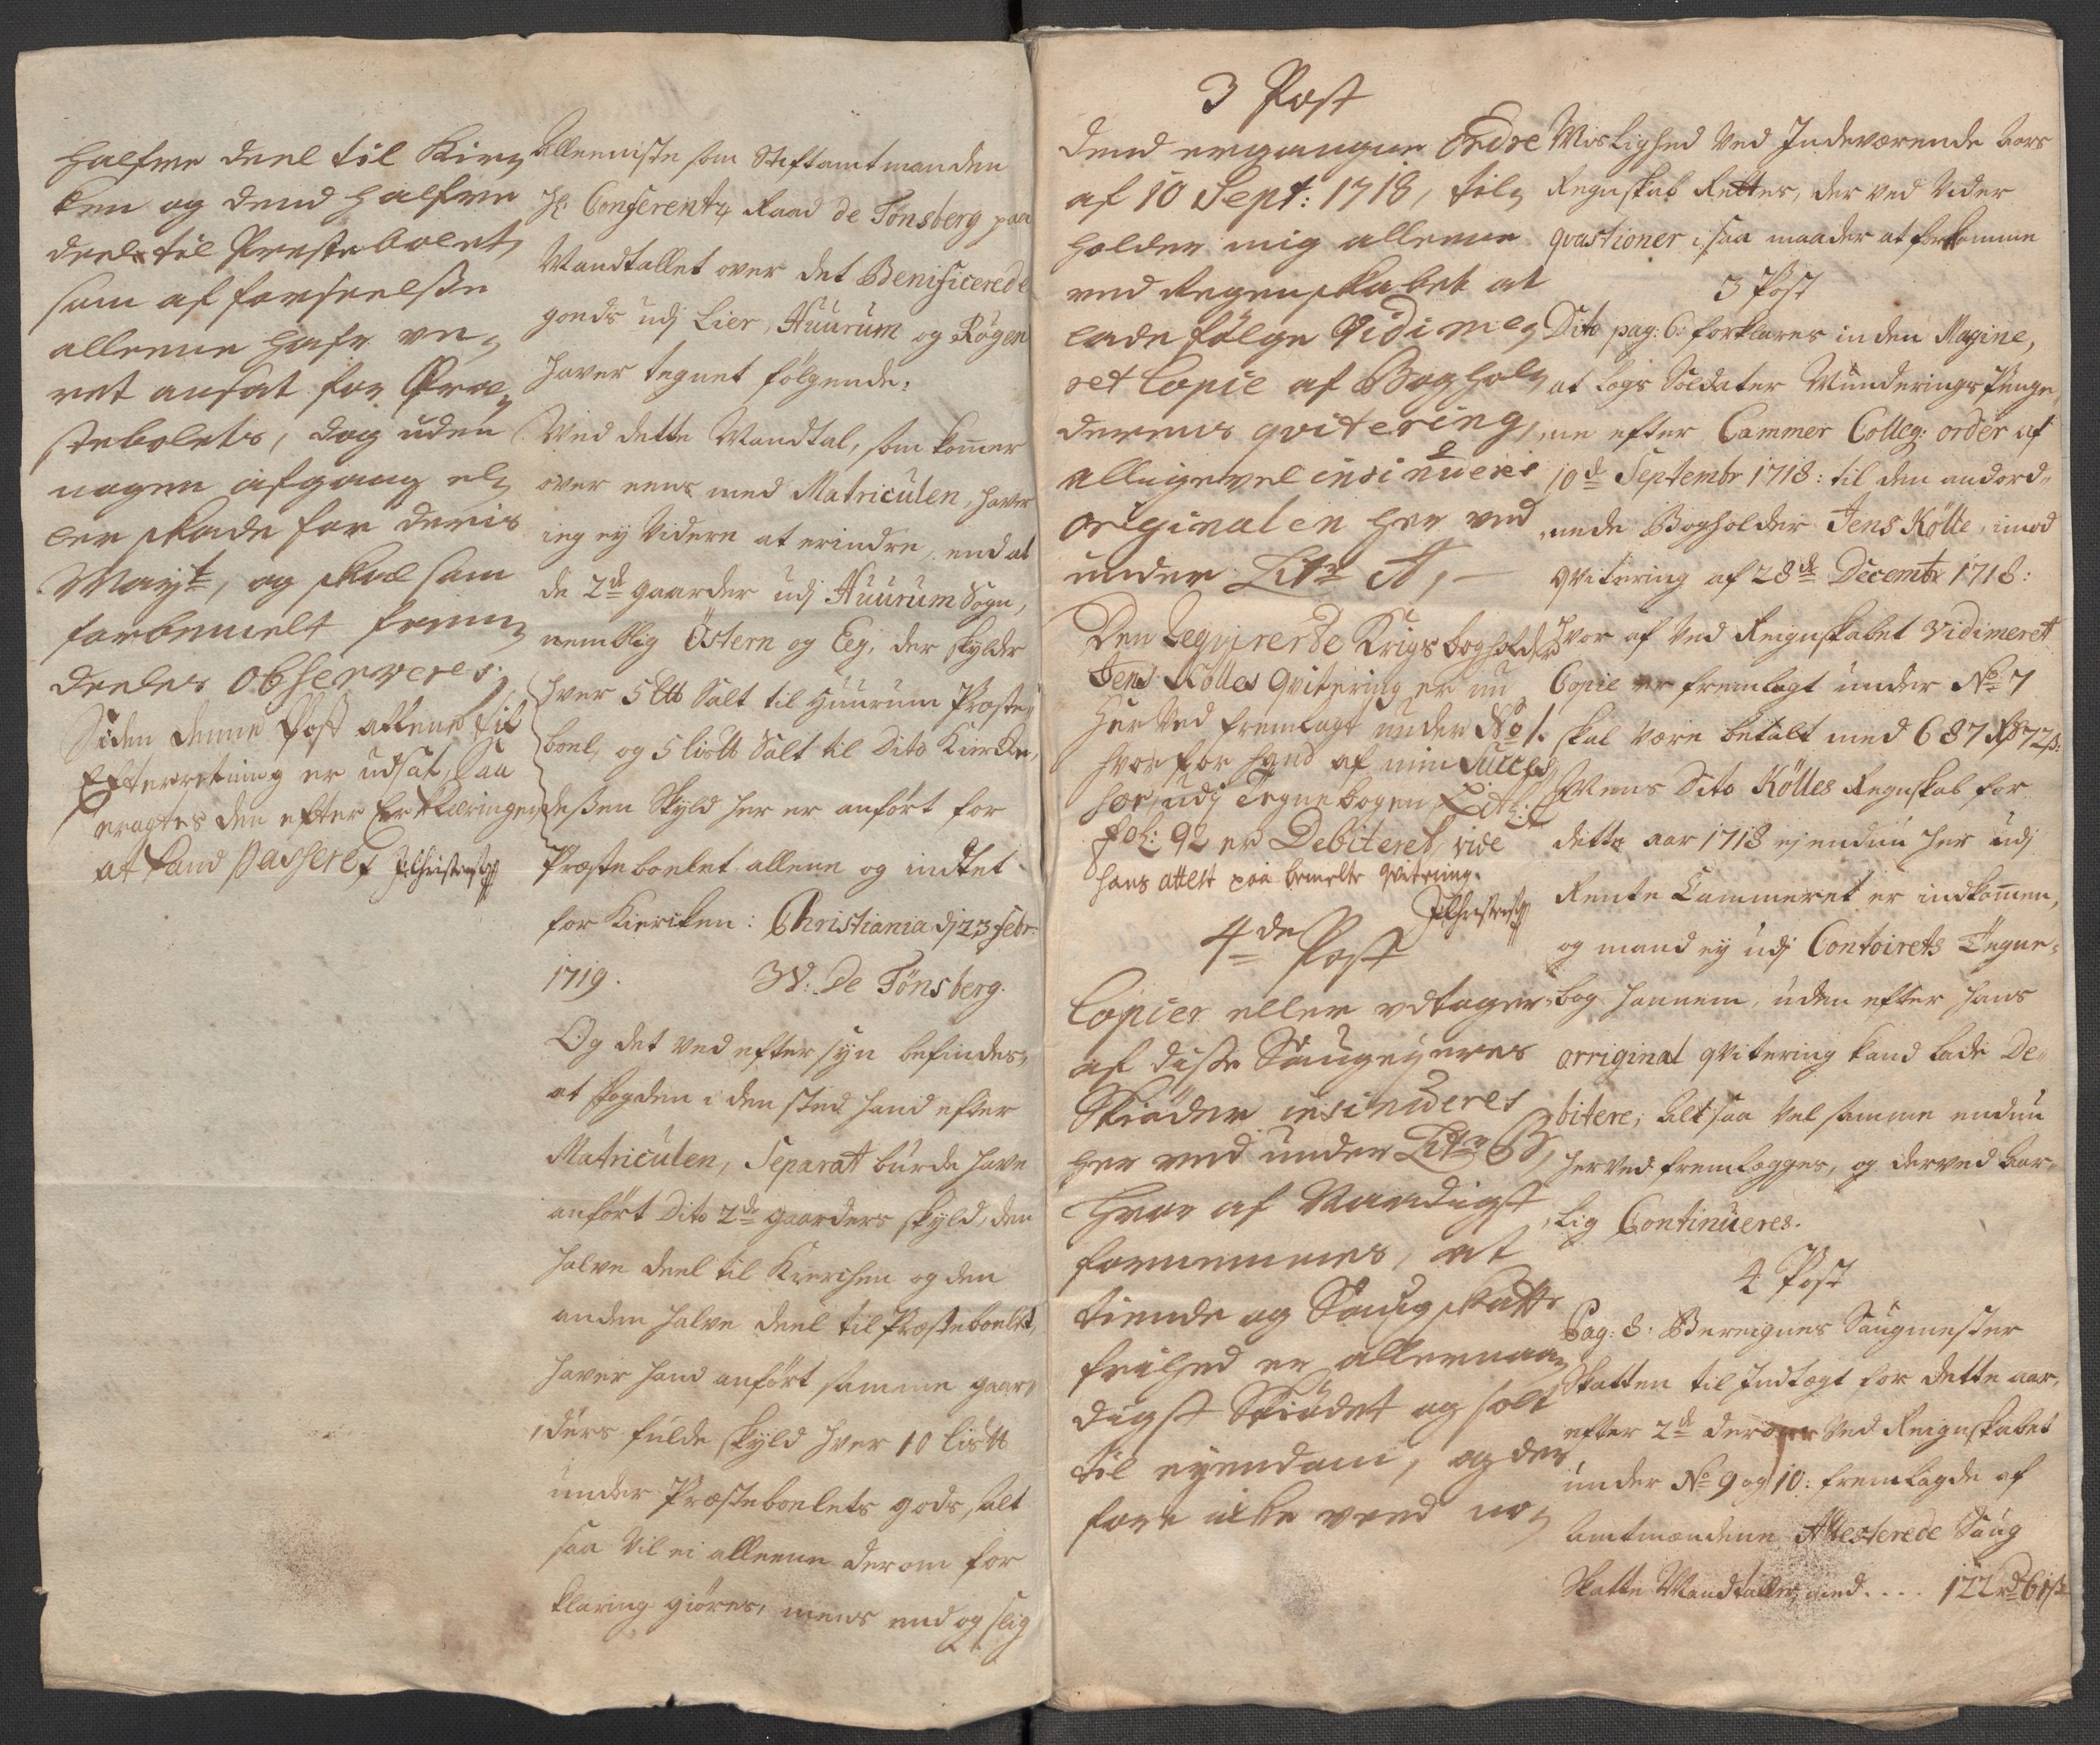 halfve deel til Kier„
ken og dend halfve
deel til Præstebolet,
som af forseelsse
alleene hafr væ„
ret ansat for Præ„
stebolets, dog uden
nogen afgang el„
ler skade for deris
Mayt, og skal som
forbemelt frem„
deeles observeres.
Siden denne Post allene til
Efterretning er udsat, saa
eragtes den efter Erklæringen
at kand passere,
Alleeniste som Stiftamtmanden
Hr. Conferentz Raad de Tönsberg paa
Mandtallet over det Benificerede
gods udj Lier, Huurum og Røgen
haver tegnet følgende:
Ved dette Mandtal, som kommer
over eens med Matriculen, haver
ieg ey videre at erindre, end at
de 2de gaarder udj Huurum Sogn,
nemblig Östern og Eeg, der skylder
hver 5 Salt til Huurum Præste„
boel, og 5 Salt til Dito Kierke,
dessen Skyld her er anført for
Præsteboelet allene og indtet
for Kierken: Christiania dj 23 Febr:
1719. W: De Tönsberg.
Og det ved eftersyn befindes,
at Fogden i den sted hand efter
Matriculen, Separat burde have
anført Dito 2de gaarders skyld, den
halve deel til Kierchen og den
anden halve deel til Præsteboelet,
haver hand anført samme gaar„
„ders fulde skyld hver 10
under Præsteboelets gods, alt
saa vil ei alleene derom for
klaring giøres, mens end og slig
3 Post
Dend ergangne Ordre
af 10 Sept: 1718, til„
holder mig alleene
ved Regenskabet at
lade følge Vidime„
ret Copie af Boghol„
derens qvitering,
alligevel insinueres
originalen her ved
under Litr A,
Den Reqvirerde Krigsbogholder
Jens Kölles qvitering er nu
her ved fremlagt under No 1.
hvorfor hand af min Succes„
sor, udj Tegnebogen
fol: 92 er Debiteret, vide
hans attest paa bemelte qvitering.
4de Post
Copier eller udtoger
af disse Saugeyeres
Skiöder insinueres
her ved under Litr B,
hvor af Naadigst
fornemmes, at
tiende og Saugskatts
frihed er allernaa„
digst Skiödet og solt
til eyendom, og der
fore icke veed no„
Mislighed ved Indeværende Aars
Regnskab Rettes, der ved vider
qvæstioner i saa maader at forkomme
3 Post
Dito pag: 6: forklares in den Magine,
at Legs Soldater Munderings Penge„
„ne efter Cammer Colleg: order af
10de Septembr 1718: til den anord„
„nede Bogholder Jens Kölle, imod
qvitering af 28de Decembr 1718:
hvor af ved Reignskabet Vidimeret
Copie er fremlagt under No 7
skal være betalt med 687 72
Mens Dito Kölles Regnskab for
dette aar 1718 ej endnu her udj
Rente Cammeret er indkommen,
og mand ey udj Contoirets Tegne„
„bog hannem, uden efter hans
original qvitering kand lade De„
bitere; Alt saa vel samme endnu
herved fremlegges, og derved Aar„
„lig Continueres.
4 Post
Pag: 8: Beregnes Saugmester
Skatten til Indtegt for dette aar,
efter 2de derover ved Reignskabet
under No 9 og 10: fremlagde af
Amtmændene Attesterede Saug
Skatte Mandtaller med.... 122 rd 61